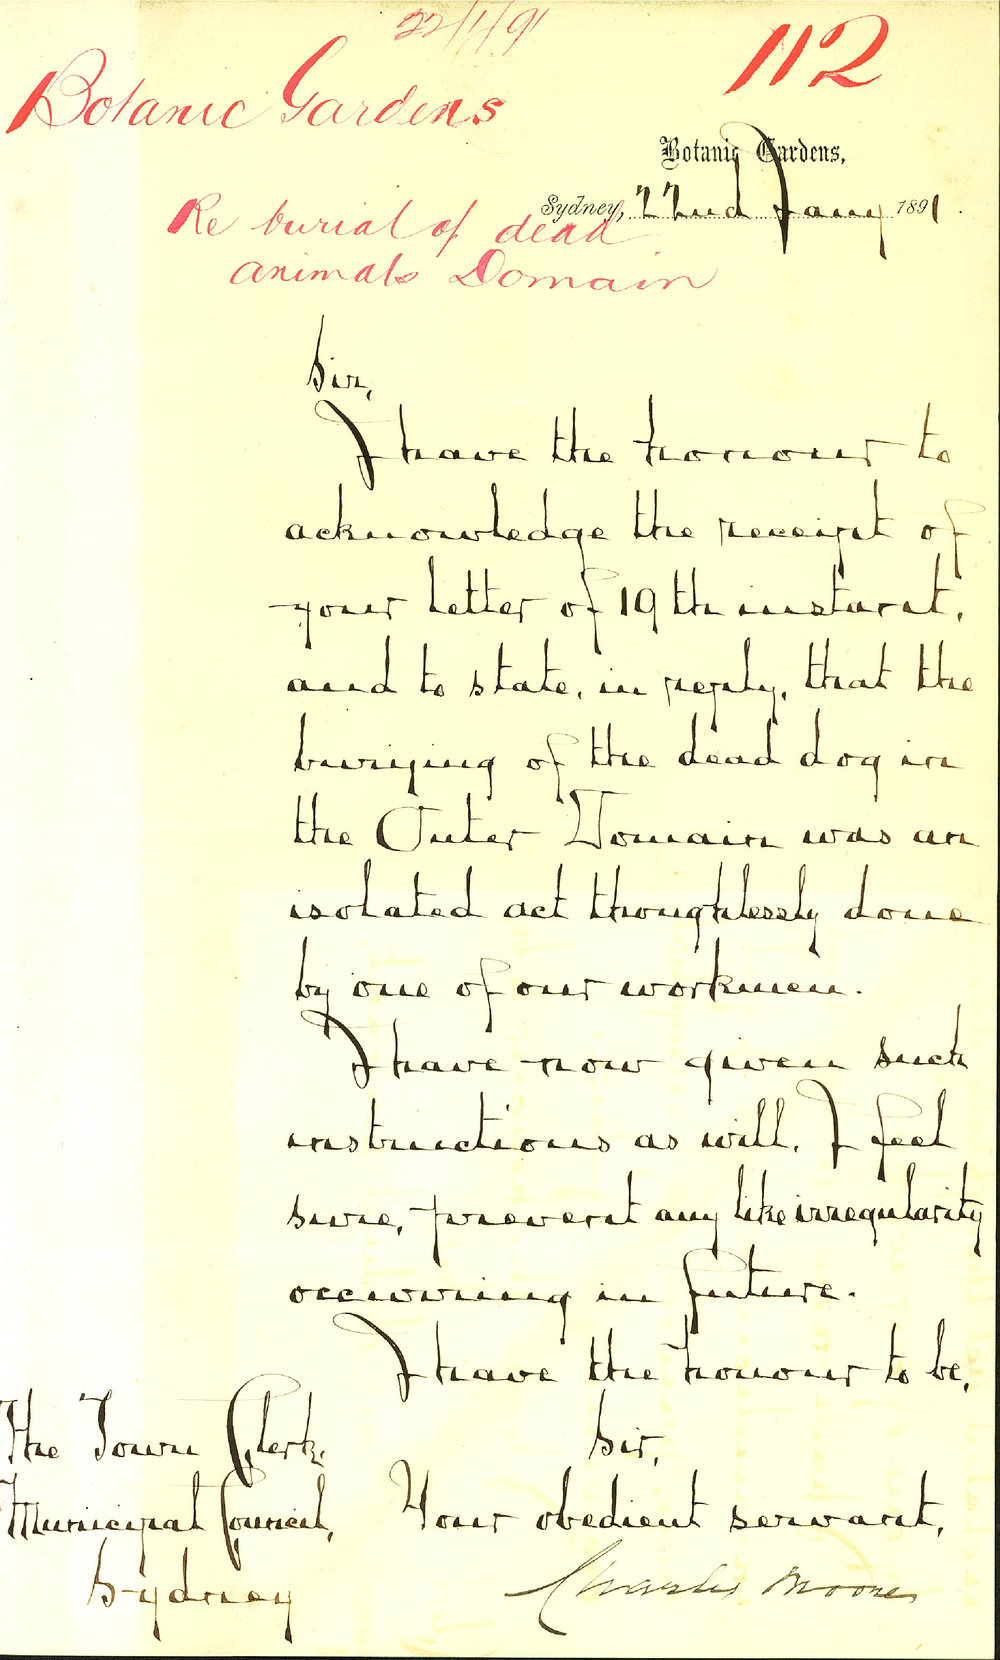 22/1/91
112
Botanic Gardens
Botanic Gardens,
Sydney, 22nd Jany 1891.
Re burial of dead
animals Domain
Sir,
I have the honour to
acknowledge the receipt of
your letter of 19th instant,
and to state, in reply, that the
burying of the dead dog in
the Outer Domain was an
isolated act thoughtlessly done
by one of our workmen.
I have now given such
instructions as will, I feel
sure, prevent any like irregularity
occurring in future.
I have the honour to be,
Sir,
Your obedient servant,
Charles Moore
The Town Clerk,
Municipal Council,
Sydney